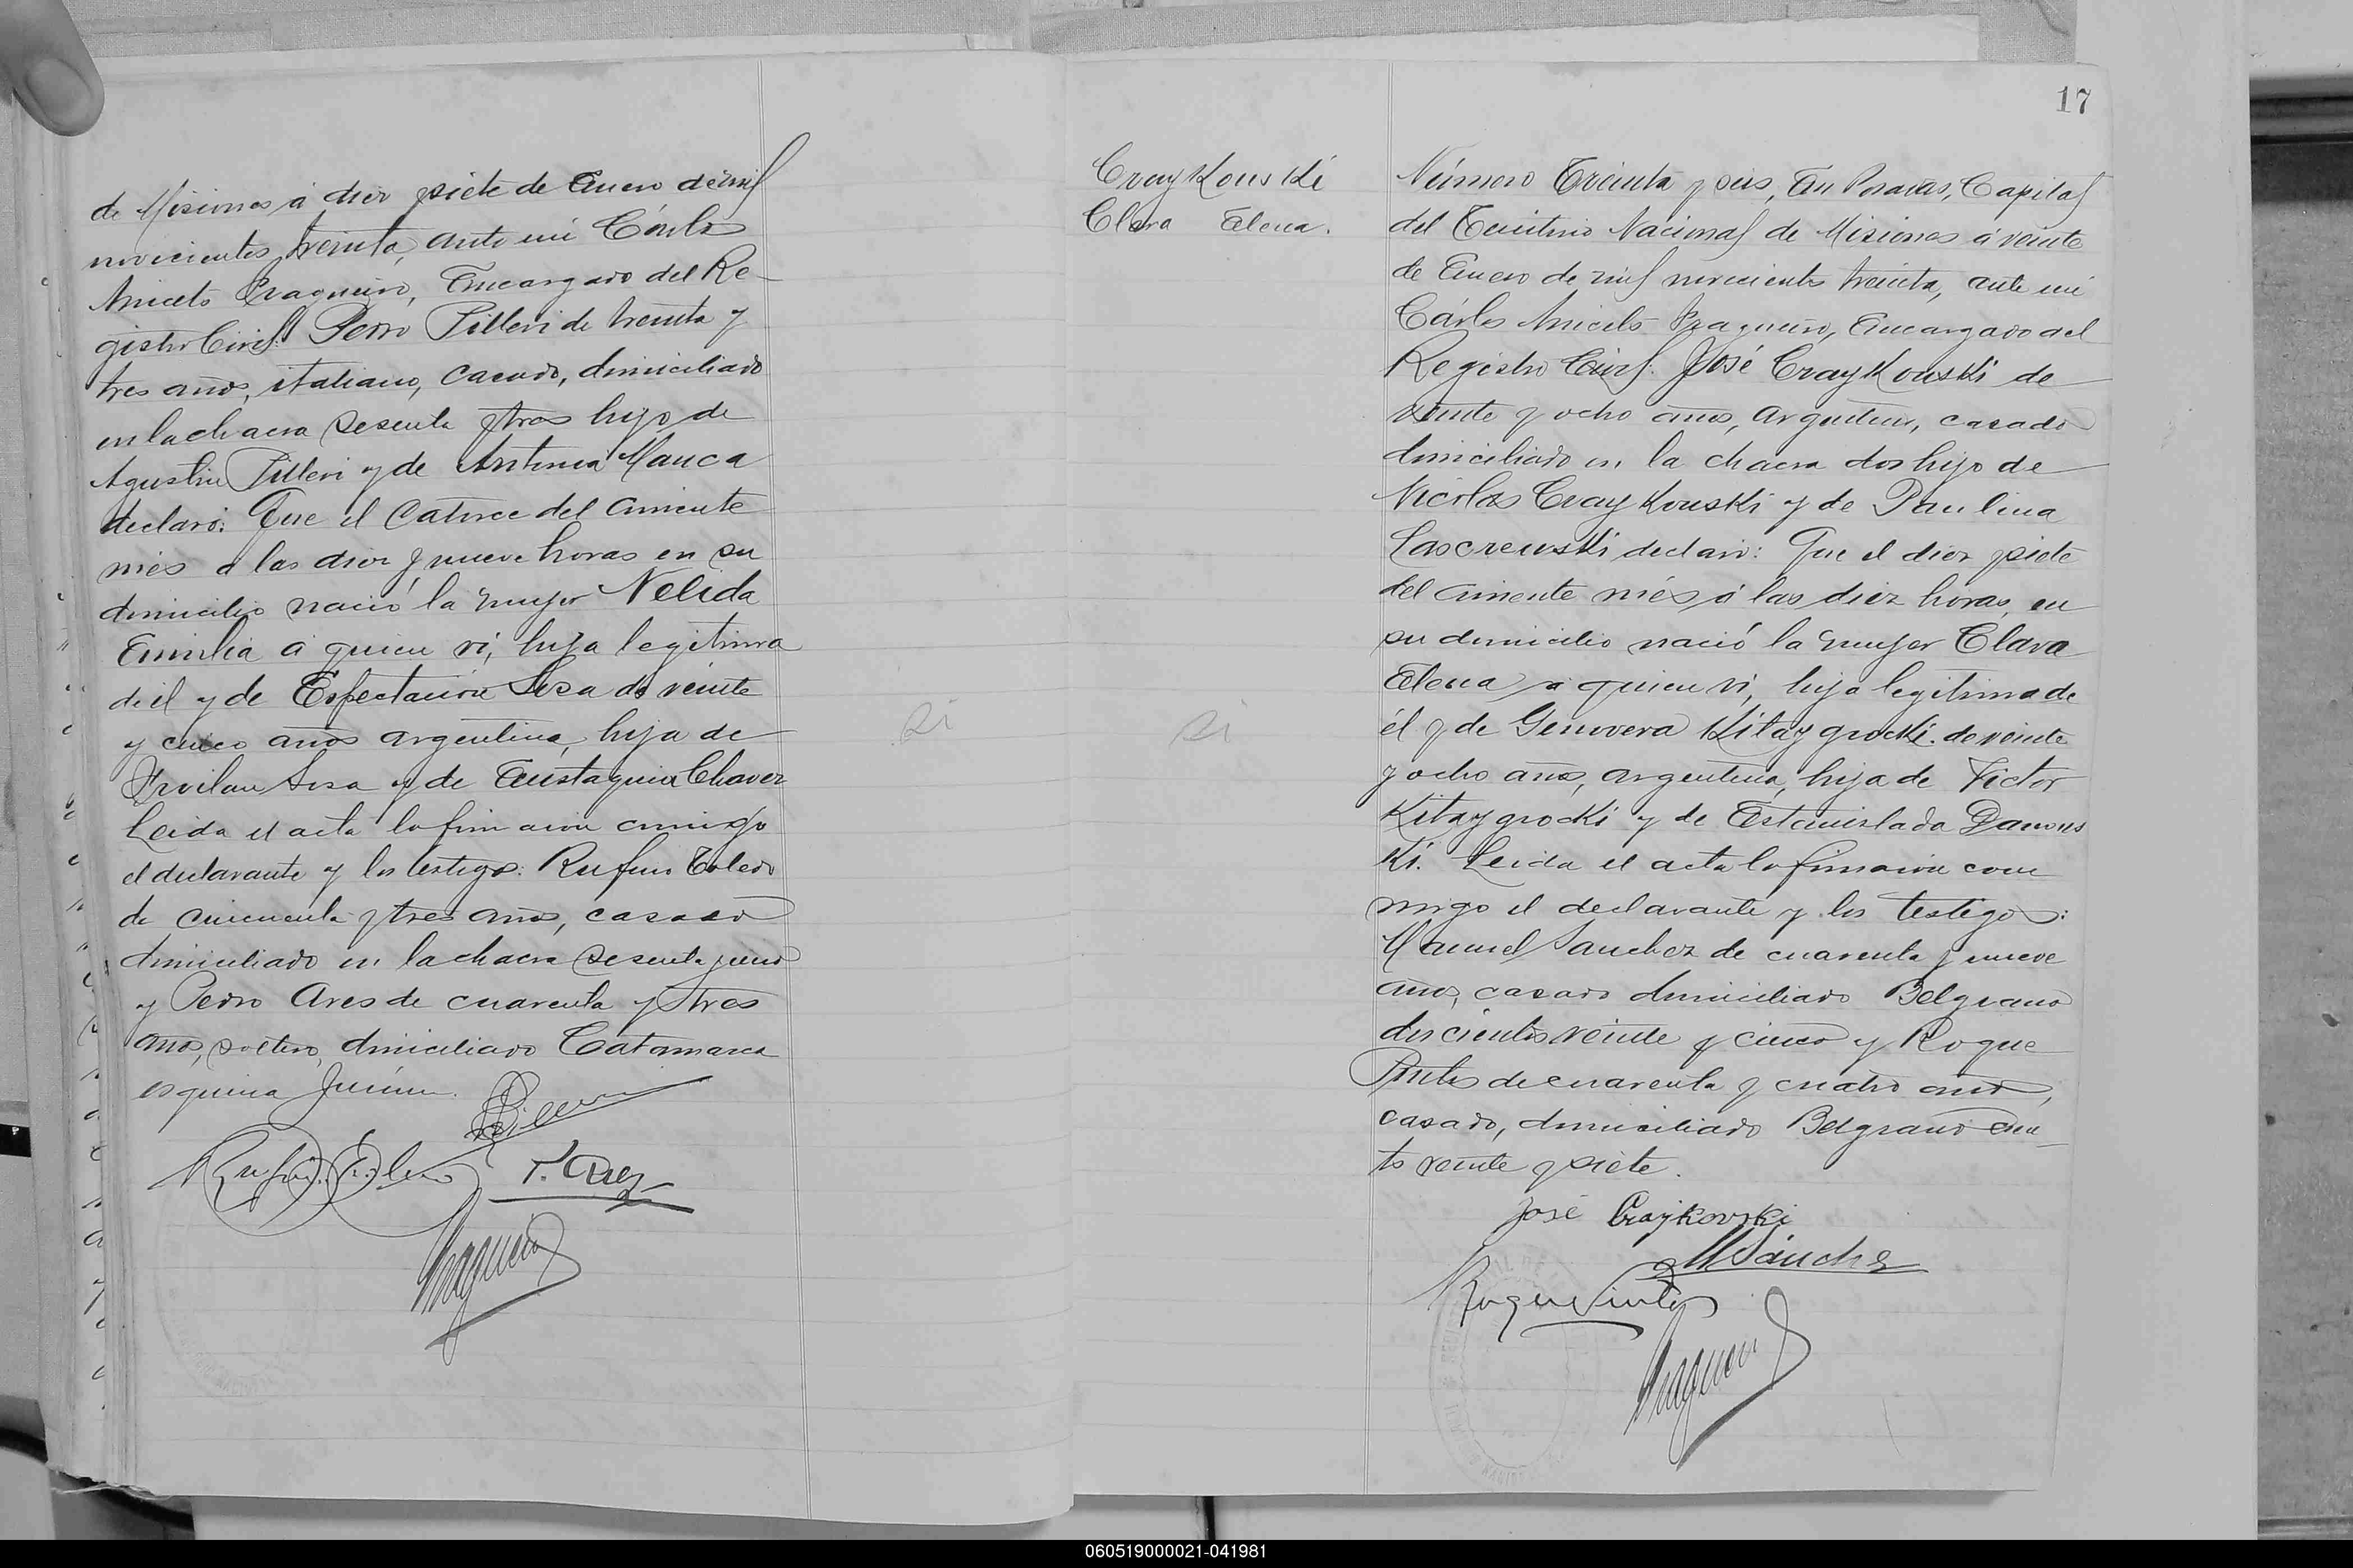 de Misiones á diez y siete de Enero de mil
novecientos treinta, ante mi Cárlos
Aniceto Fragueiro, Encargado del Re-
gistro Civil. Pedro Pilleri de treinta y
tres años, italiano, casado, domiciliado
en la chacra sesenta y tres hijo de
Agustin Pilleri y de Antonia Mauca
declaró: Que el catorce del corriente
més a las diez y nueve horas en su
domicilio nació la mujer Nelida
Emilia á quien ví, hija legítima
de él y de Espectación Sosa de veinte
y cinco años argentina, hija de
Froilan Sosa y de Eustaquia Chavez
Leida el acta la firmaron conmigo
el declarante y los testigos: Rufino Toledo
de cincuenta y tres años, casado
domiciliado en la chacra sesenta y uno
y Pedro Ares de cuarenta y tres
años, soltero, domiciliado Catamarca
esquina Junín.
Rufino Toledo P. Ares
Fragueiro
si
17
Craykouski
Clara Elena.
si
Número Treinta y seis, En Posadas, Capital
del Territorio Nacional de Misiones á veinte
de Enero de mil novecientos treinta, ante mi
Cárlos Aniceto Fragueiro, Encargado del
Registro Civil. José Craykouski de
veinte y ocho años, argentino, casado
domiciliado en la chacra dos hijo de
Nicolas Craykouski y de Paulina
Lascrewski declaró: Que el diez y siete
del corriente més á las diez horas, en
su domicilio nació la mujer Clara
Elena á quien ví, hija legítima de
él y de Genovera Kitaygrocki. de veinte
y ocho años, argentina, hija de Victor
Kitaygrocki y de Estanislada Danous
ki. Leida el acta la firmaron con
migo el declarante y los testigos:
Manuel Sanchez de cuarenta y nueve
años, casado domiciliado Belgrano
doscientos veinte y cinco y Roque
Pintos de cuarenta y cuatro años,
casado, domiciliado Belgrano cien-
to veinte y siete.
José Craykovski
M Sánchez
Roque Pintos
Fragueiro
060519000021-041981